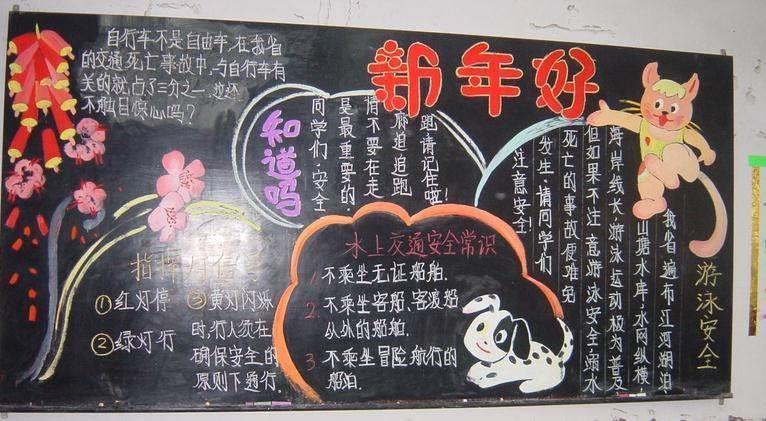 新年好
自行车不是自由车，在我省
的交通死亡事故中，与自行车有
关的就占了三分之一，这还
不触目惊心吗？
知道吗
同学们，安全
是最重要的，
请不要在走
廊追追跑
跑，请记住哦！
指挥灯信号
①红灯停
②绿灯行
③黄灯闪烁
时，行人须在
确保安全的
原则下通行
水上交通安全常识
1、不乘坐无证船舶.
2、不乘坐客船、客渡船
以外的船舶.
3、不乘坐冒险航行的
船泊.
游泳安全
我省遍布江河湖泊
山塘水库，水网纵横
海岸线长，游泳运动极为普及
但如果不注意游泳安全，溺水
死亡的事故便难免
发生，请同学们
注意安全！